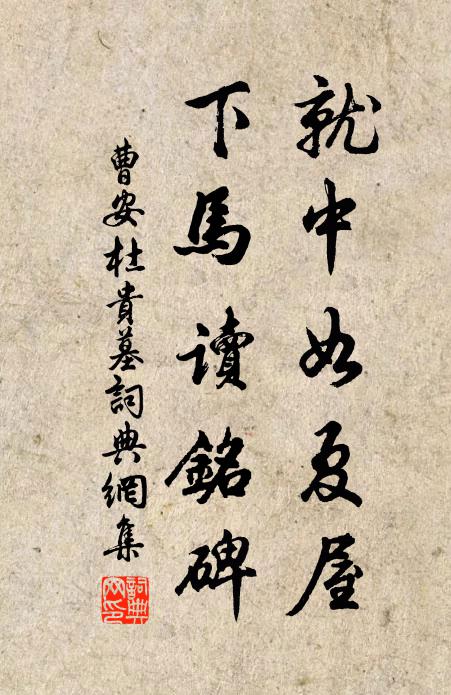 就中如夏屋
下馬讀銘碑
曹安杜貴墓詞典網集
詞典網印